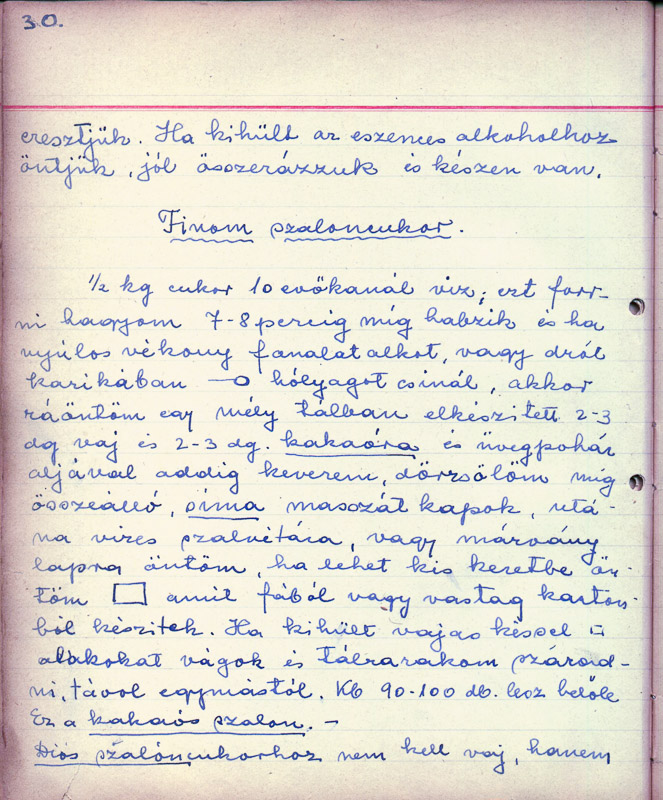 30.
eresztjük. Ha kihült az eszences alkoholhoz
öntjük, jól összerázzuk és készen van.
Finom szaloncukor.
1/2 kg cukor 10 evőkanál viz; ezt forr-
ni hagyom 7-8 percig míg habzik és ha
nyúlos vékony fonalat alkot, vagy drót
karikában hólyagot csinál, akkor
ráöntöm egy mély tálban elkészitett 2-3
dg vaj és 2-3 dg. kakaóra és üvegpohár
aljával addig keverem, dörzsölöm míg
összeálló, síma masszát kapok, utá-
na vizes szalvétára, vagy márvány
lapra öntöm, ha lehet kis keretbe ön-
töm amit fából vagy vastag karton-
ból készitek. Ha kihült vajas késsel □
alakokat vágok és tálra rakom szárad-
ni, távol egymástól. Kb 90-100 db. lesz belőle
Ez a kakaós szalon. -
Diós szaloncukorhoz nem kell vaj, hanem